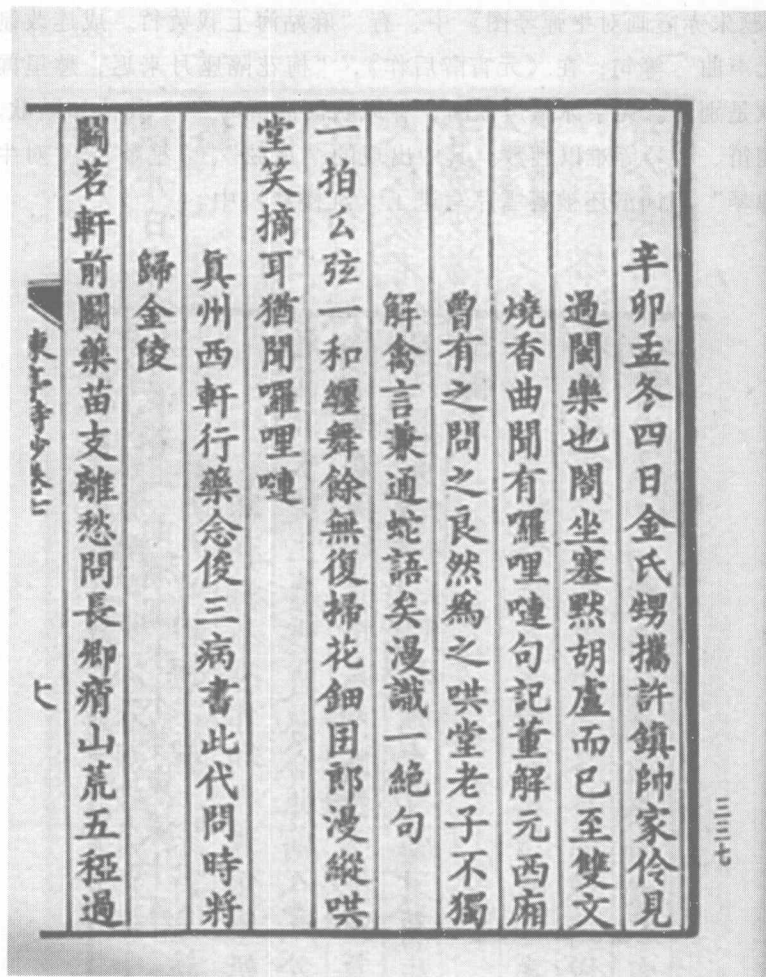 辛卯孟冬四日金氏甥攜許鎮帥家伶見
過閩樂也閤坐塞默胡盧而已至雙文
燒香曲聞有囉哩嗹句記董解元西廂
曾有之問之良然為之哄堂老子不獨
解禽言兼通蛇語矣漫識一絕句
一拍么弦一和纏舞餘無復掃花鈿囝郎漫縱哄
堂笑摘耳猶聞囉哩嗹
真州西軒行藥念俊三病書此代問時將
歸金陵
鬬茗軒前鬬藥苗支離愁問長卿痟山荒五稏過
東亭詩鈔卷
三三七